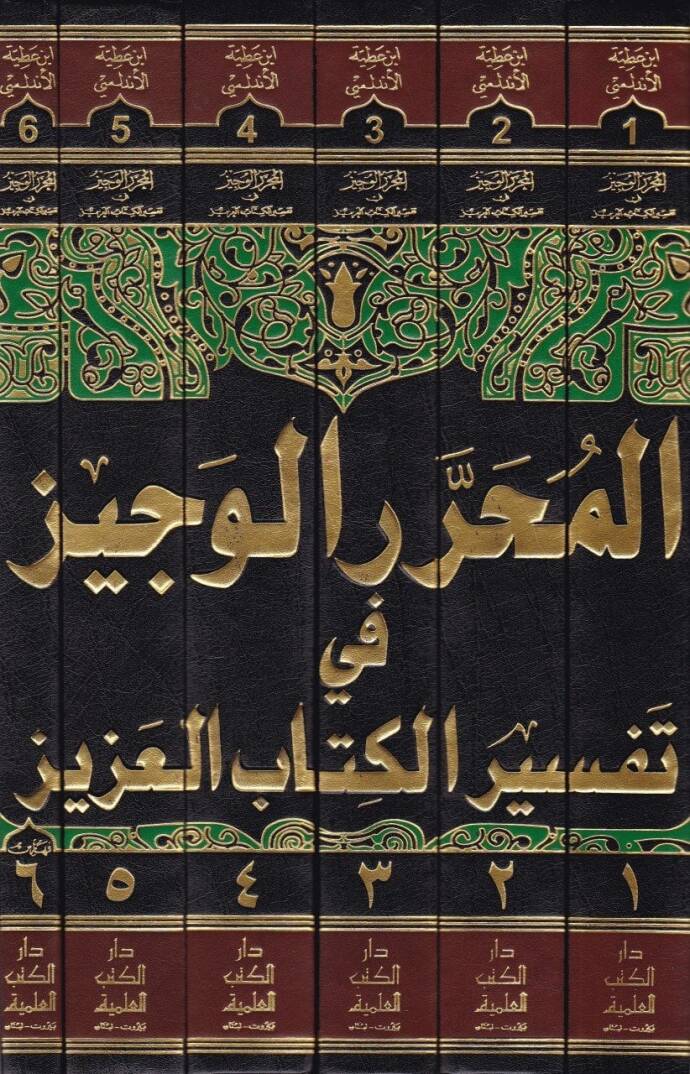 ابن عطية
الأندلسي
1
المحرر الوجيز
في
تفسير الكتاب العزيز
ابن عطية
الأندلسي
2
المحرر الوجيز
في
تفسير الكتاب العزيز
ابن عطية
الأندلسي
3
المحرر الوجيز
في
تفسير الكتاب العزيز
ابن عطية
الأندلسي
4
المحرر الوجيز
في
تفسير الكتاب العزيز
ابن عطية
الأندلسي
5
المحرر الوجيز
في
تفسير الكتاب العزيز
ابن عطية
الأندلسي
6
المحرر الوجيز
في
تفسير الكتاب العزيز
المُحَرَّر الوَجيز
في
تَفسير الكِتاب العَزيز
١ ٢ ٣ ٤ ٥ ٦
دار
الكتب
العلمية
بيروت - لبنان
دار
الكتب
العلمية
بيروت - لبنان
دار
الكتب
العلمية
بيروت - لبنان
دار
الكتب
العلمية
بيروت - لبنان
دار
الكتب
العلمية
بيروت - لبنان
دار
الكتب
العلمية
بيروت - لبنان